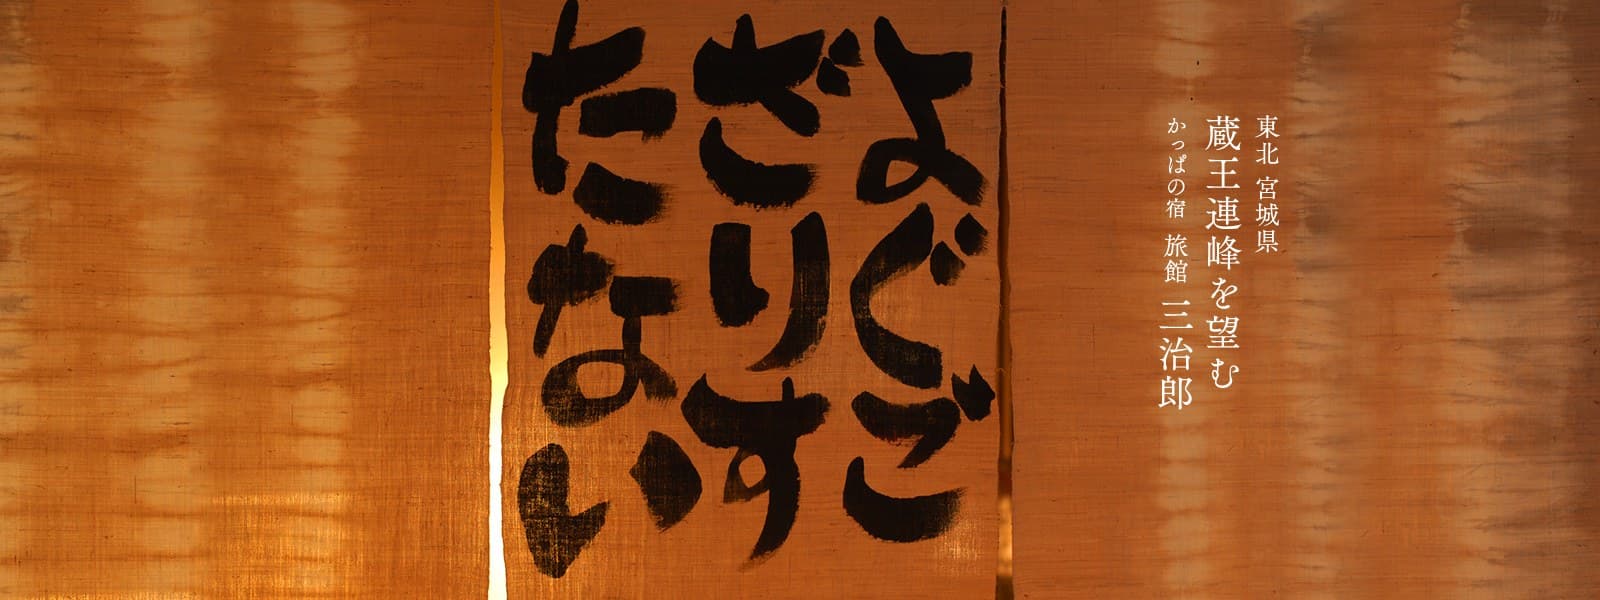 よぐご
ざりす
たない
東北 宮城県
蔵王連峰を望む
かっぱの宿 旅館 三治郎